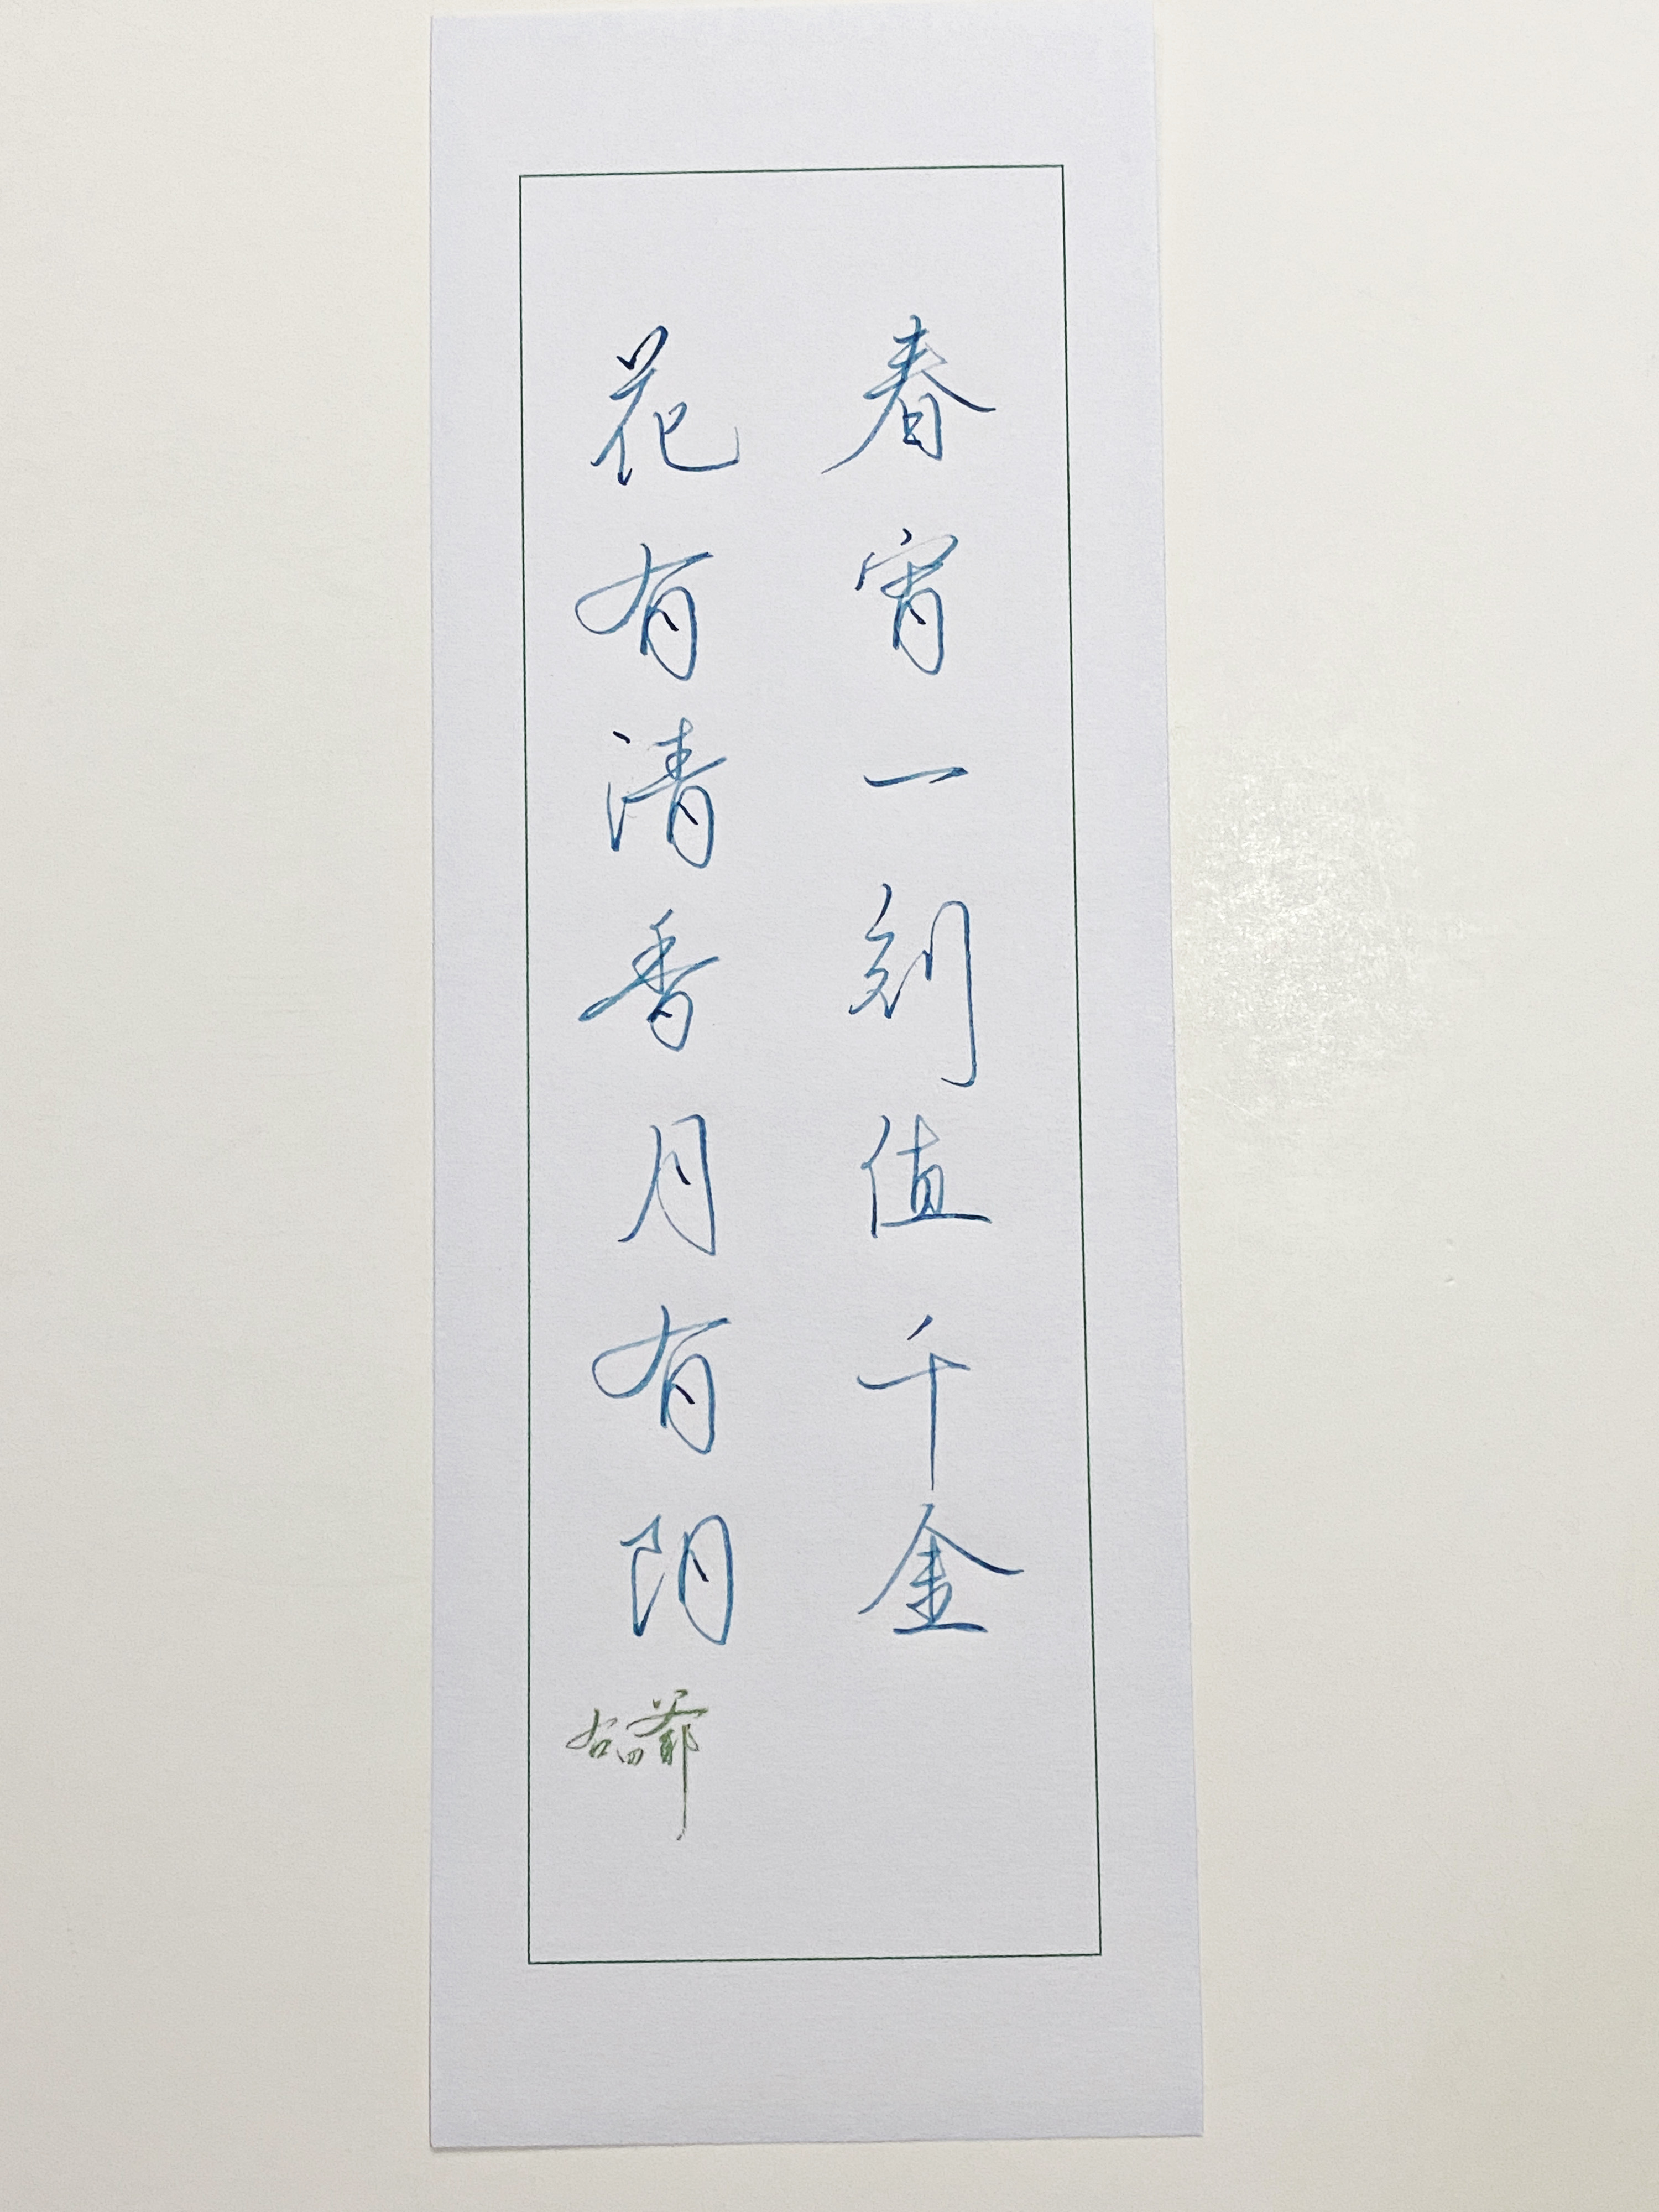 春宵一刻值千金
花有清香月有阴